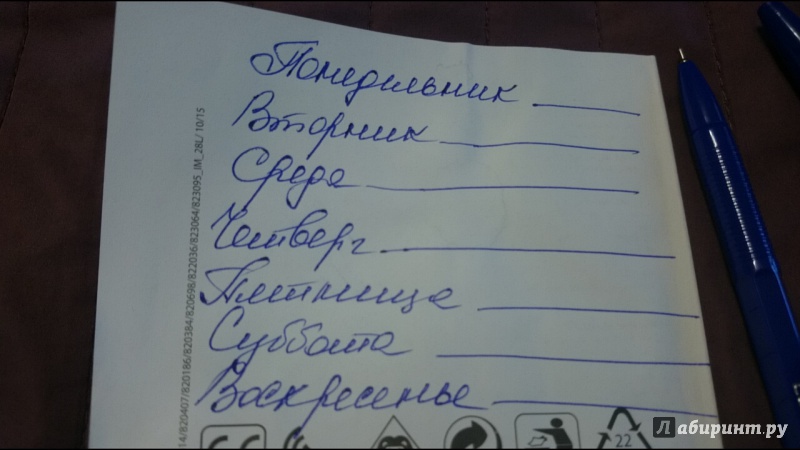 Понедельник
Вторник
Среда
Четверг
Пятница
Суббота
Воскресенье
14/820407/820186/820384/820698/822036/823064/823095_IM_28L/10/15
22
Лабиринт.ру